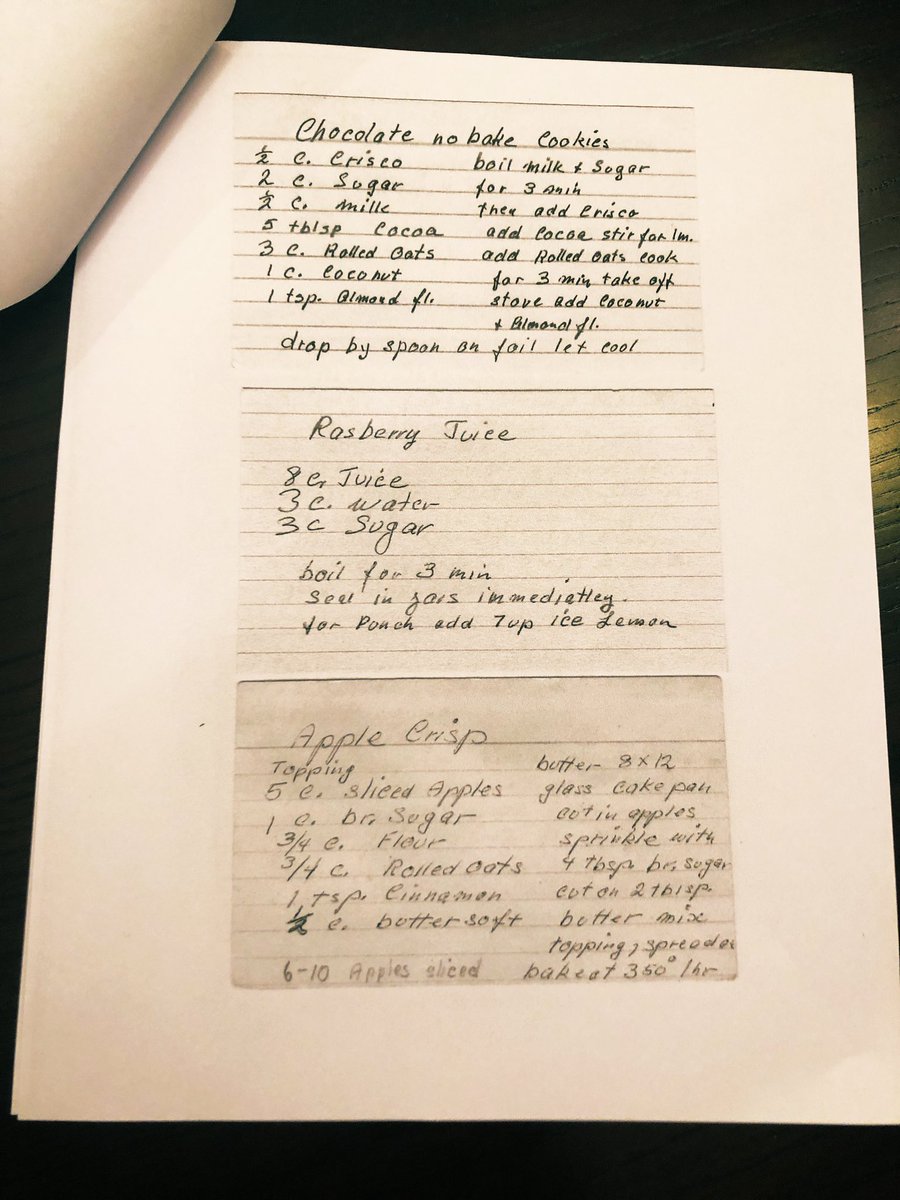 Chocolate no bake Cookies
½ c. Crisco boil milk + Sugar
2 c. Sugar for 3 min
½ c. milk then add Crisco
5 tblsp Cocoa add Cocoa stir for 1m.
3 c. Rolled Oats add Rolled Oats cook
1 c. Coconut for 3 min take off
1 tsp. Almond fl. stove add Coconut
+ Almond fl.
drop by spoon on foil let cool
Rasberry Juice
8 c. Juice
3 c. water
3 c Sugar
boil for 3 min
Seal in jars immediatley.
for Punch add 7up ice Lemon
Apple Crisp
Topping butter 8x12
5 c. sliced Apples glass cake pan
1 c. br. Sugar cut in apples
3/4 c. Flour sprinkle with
3/4 c. Rolled Oats 4 tbsp. br. sugar
1 tsp. Cinnamon cut on 2 tblsp.
½ c. butter soft butter mix
topping, spread
6-10 Apples sliced bake at 350° 1hr